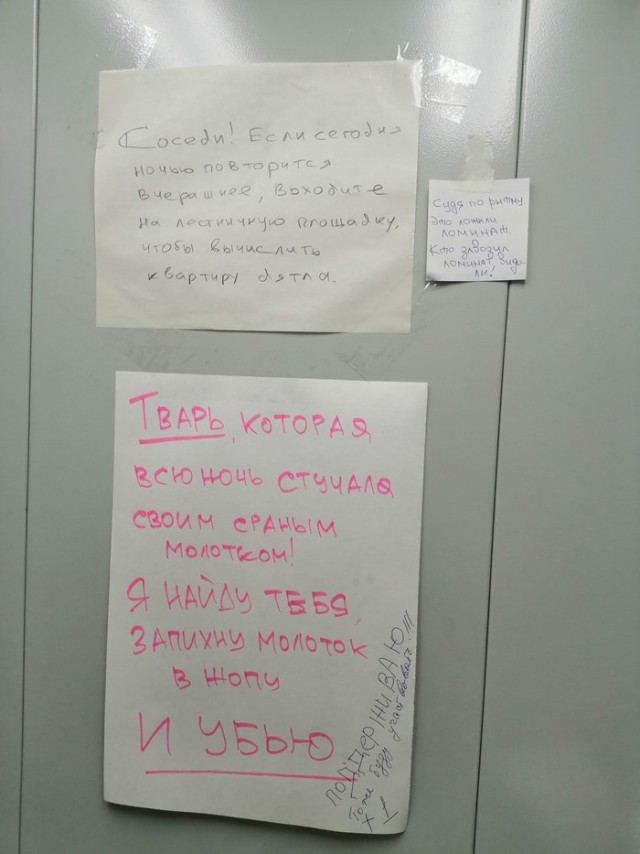 Соседи! Если сегодня
ночью повторится
вчерашнее, выходите
на лестничную площадку,
чтобы вычислить
квартиру дятла.
Судя по ритму,
это ложили
ломинат.
Кто завозил
ломинат, вида
ли!
Тварь, которая
всю ночь стучала
своим сраным
молотком!
Я найду тебя,
запихну молоток
в жопу
и убью
ПОДДЕРЖИВАЮ
Тоже буду участвовать!!!